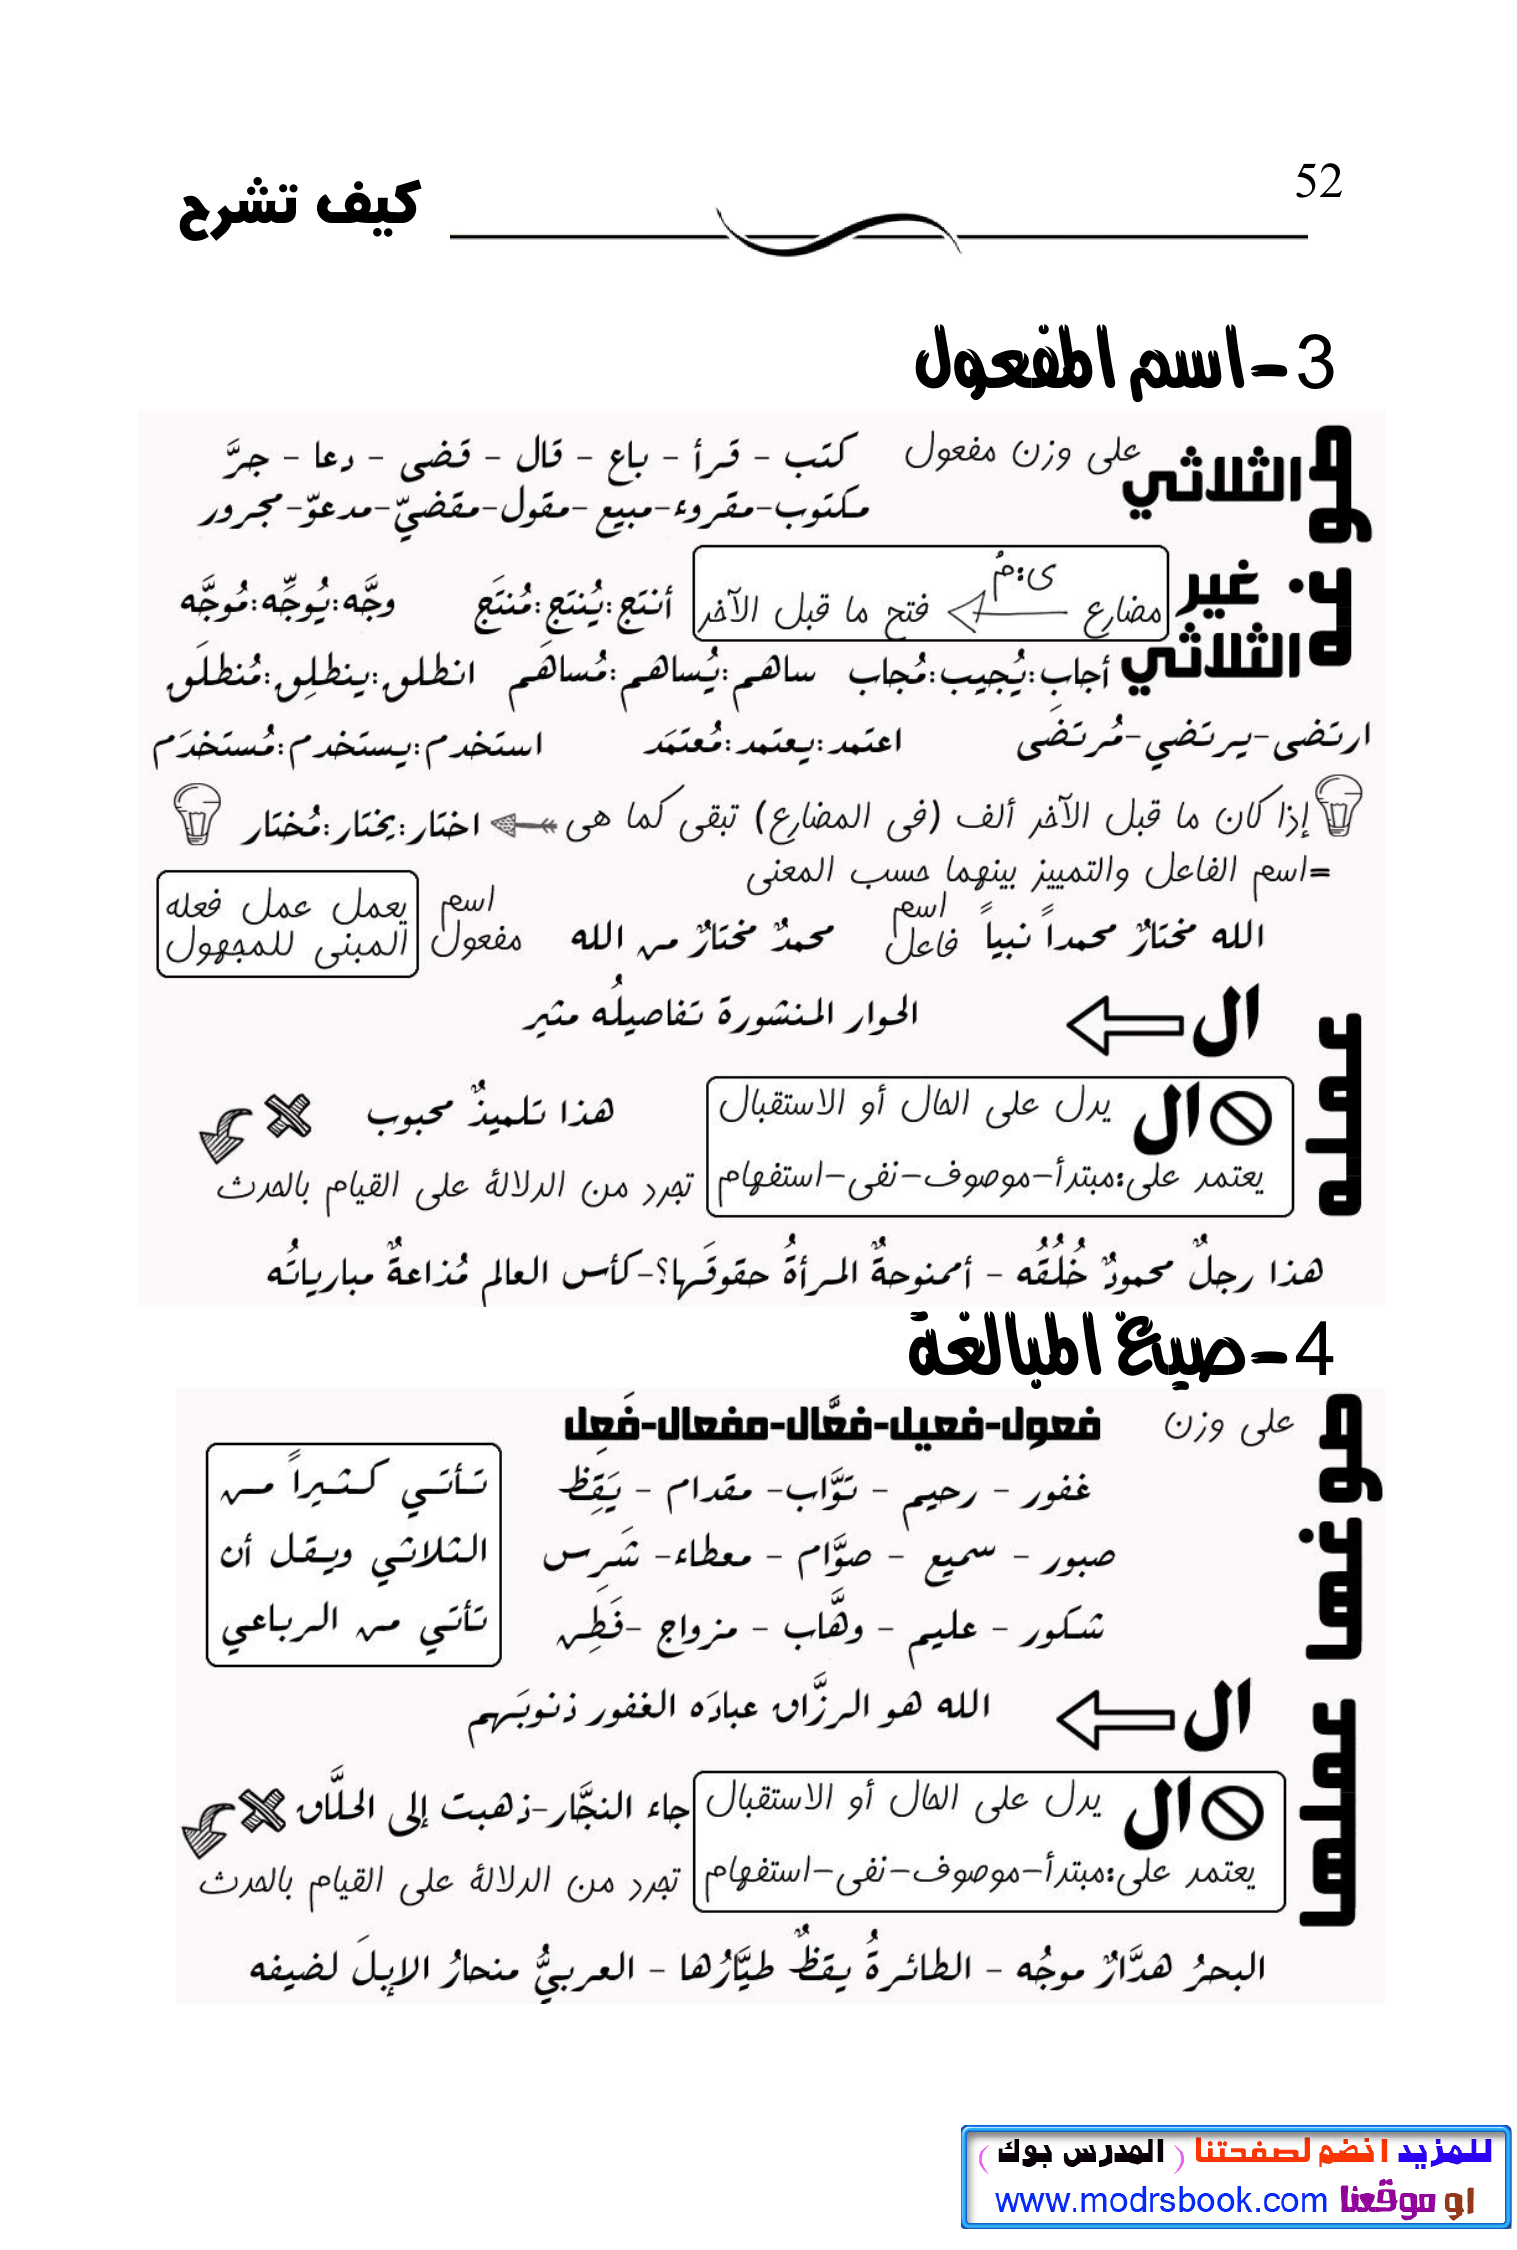 52
كيف تشرح
3-اسم المفعول
صوغه
الثلاثي على وزن مفعول كتب - قرأ - باع - قال - قضى - دعا - جرَّ
مكتوب-مقروء-مبيع-مقول-مقضيّ-مدعوّ-مجرور
غير الثلاثي
مضارع ى:مُ فتح ما قبل الآخر
أنتج:يُنتَج:مُنتَج وجَّه:يُوجِّه:مُوجَّه
أجاب:يُجيب:مُجاب ساهم:يُساهم:مُساهَم انطلق:ينطلِق:مُنطلَق
ارتضى-يرتضي-مُرتضَى اعتمد:يعتمد:مُعتمَد استخدم:يستخدم:مُستخدَم
إذا كان ما قبل الآخر ألف (فى المضارع) تبقى كما هى اختار:يختار:مُختار
=اسم الفاعل والتمييز بينهما حسب المعنى
الله مختارٌ محمداً نبياً اسم فاعل محمدٌ مختارٌ من الله اسم مفعول
يعمل عمل فعله
المبنى للمجهول
عمله
ال الحوار المنشورة تفاصيلُه مثير
ال يدل على الحال أو الاستقبال هذا تلميذٌ محبوب
يعتمد على:مبتدأ-موصوف-نفى-استفهام تجرد من الدلالة على القيام بالحدث
هذا رجلٌ محمودٌ خُلُقُه - أممنوحةٌ المرأةُ حقوقَها؟-كأس العالم مُذاعةٌ مبارياتُه
4-صيغ المبالغة
صوغها
على وزن فعول-فعيل-فعَّال-مفعال-فَعِل
غفور - رحيم - توَّاب- مقدام - يَقِظ
صبور - سميع - صوَّام - معطاء- شَرِس
شكور - عليم - وهَّاب - مزواج -فَطِن
تأتي كثيراً من
الثلاثي ويقل أن
تأتي من الرباعي
عملها
ال الله هو الرزَّاق عبادَه الغفور ذنوبَهم
ال يدل على الحال أو الاستقبال جاء النجَّار-ذهبت إلى الحلَّاق
يعتمد على:مبتدأ-موصوف-نفى-استفهام تجرد من الدلالة على القيام بالحدث
البحرُ هدَّارٌ موجُه - الطائرةُ يقظٌ طيَّارُها - العربيُّ منحارُ الإبلَ لضيفه
للمزيد انضم لصفحتنا ( المدرس بوك )
او موقعنا www.modrsbook.com